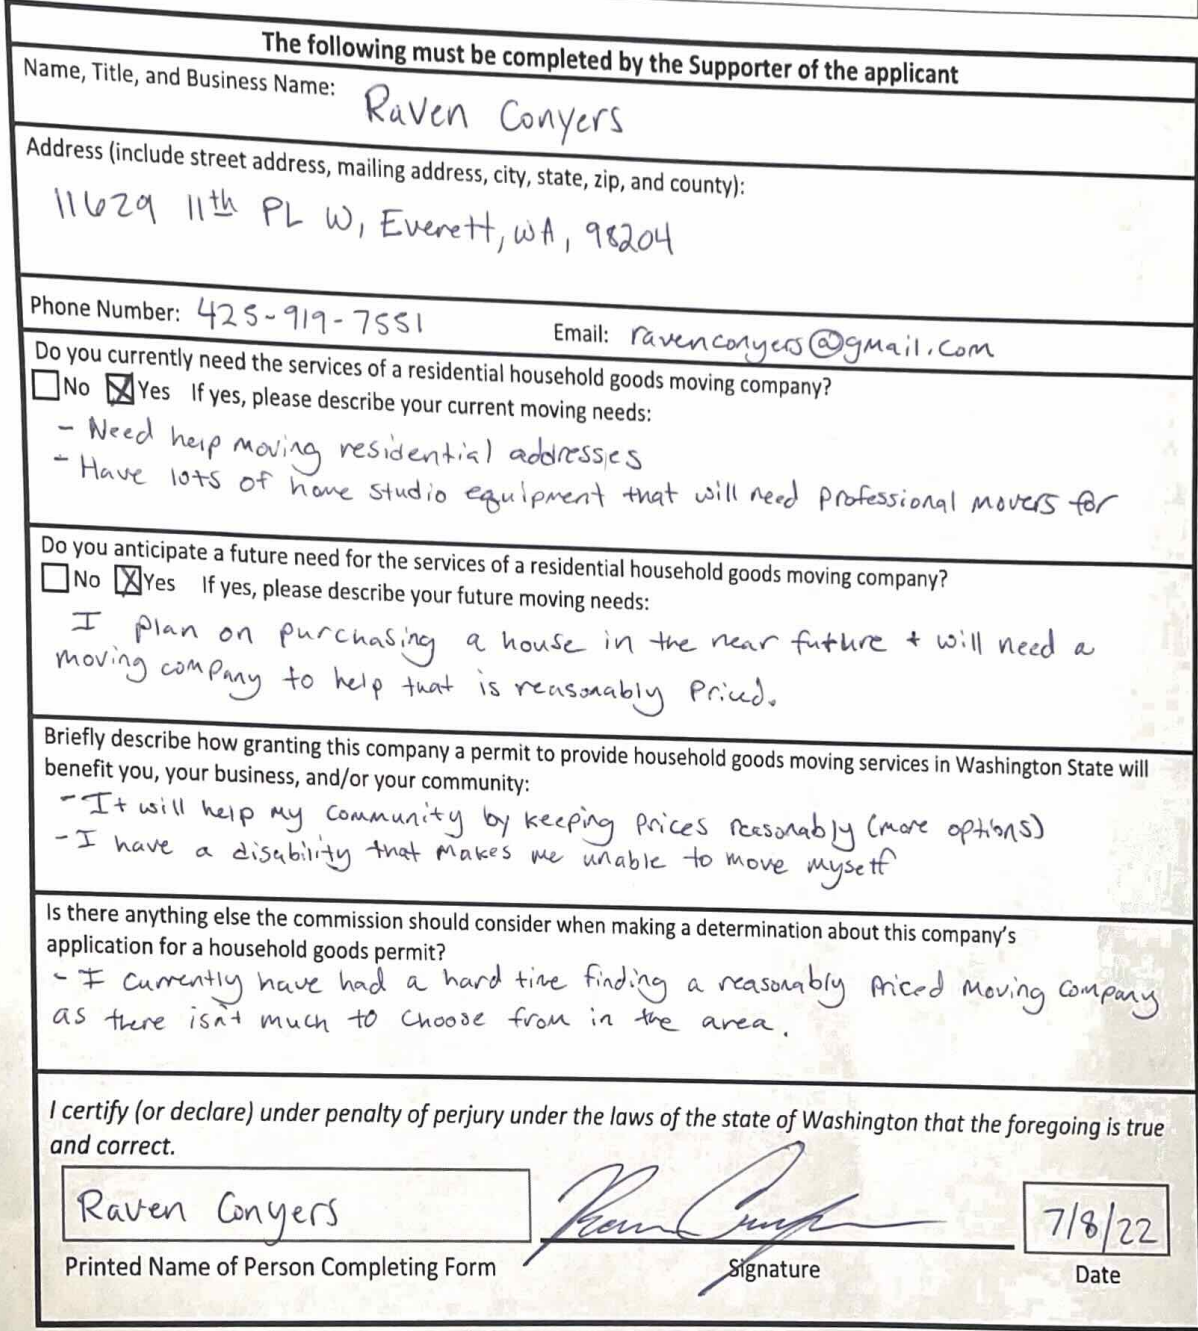 The following must be completed by the Supporter of the applicant
Name, Title, and Business Name: Raven Conyers
Address (include street address, mailing address, city, state, zip, and county):
11629 11th PL W, Everett, WA, 98204
Phone Number: 425-919-7551 Email: ravenconyers@gmail.com
Do you currently need the services of a residential household goods moving company?
No Yes If yes, please describe your current moving needs:
- Need help moving residential addresses
- Have lots of home studio equipment that will need professional movers for
Do you anticipate a future need for the services of a residential household goods moving company?
No Yes If yes, please describe your future moving needs:
I plan on purchasing a house in the near future + will need a
moving company to help that is reasonably priced.
Briefly describe how granting this company a permit to provide household goods moving services in Washington State will
benefit you, your business, and/or your community:
- It will help my community by keeping prices reasonably (more options)
- I have a disability that makes me unable to move myself
Is there anything else the commission should consider when making a determination about this company's
application for a household goods permit?
- I currently have had a hard time finding a reasonably priced moving company
as there isn't much to choose from in the area.
I certify (or declare) under penalty of perjury under the laws of the state of Washington that the foregoing is true
and correct.
Raven Conyers 7/8/22
Printed Name of Person Completing Form Signature Date